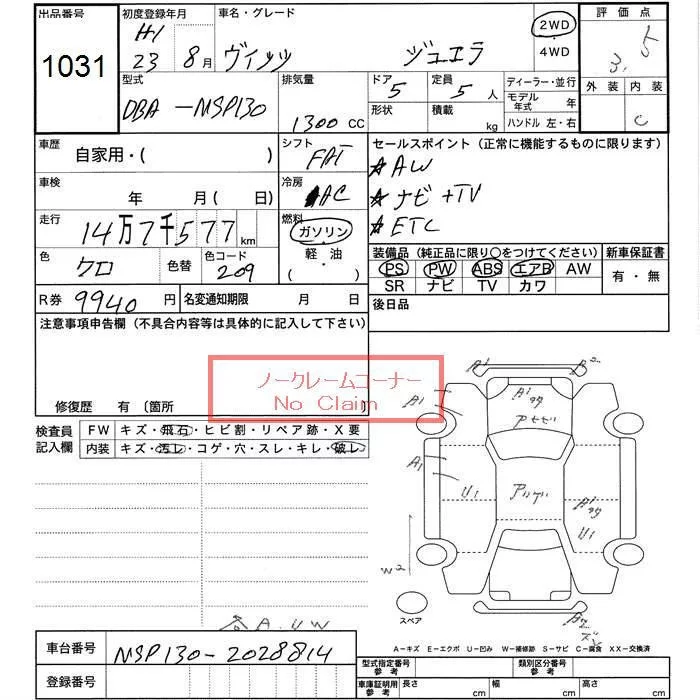 出品番号 1031
初度登録年月 H 23 8月
車名・グレード ヴィッツ ジュエラ
2WD
4WD
評価点 3.5
外装 内装 C
型式 DBA-NSP130
排気量 1300 CC
ドア 5 定員 5 人
形状 積載 kg
ディーラー・並行
モデル年式 年
ハンドル 左・右
車歴 自家用・( )
シフト FAT
セールスポイント (正常に機能するものに限ります)
★AW
★ナビ+TV
★ETC
車検 年 月( 日)
冷房 AC
走行 14万7千577 km
燃料 ガソリン
軽・油
( )
色 クロ 色替 色コード 209
装備品 (純正品に限り○をつけてください)
PS PW ABS エアB AW
SR ナビ TV カワ
新車保証書
有・無
R券 9940 円 名変通知期限 月 日
後日品
注意事項申告欄 (不具合内容等は具体的に記入して下さい)
ノークレームコーナー
No Claim
修復歴 有 〔箇所
検査員記入欄
FW キズ・飛石・ヒビ割・リペア跡・X要
内装 キズ・汚レ・コゲ・穴・スレ・キレ・破レ
A1 A2
A1 A1
A1
U1 A1
U1
W2
スペア
A2
A.UW
A-キズ E-エクボ U-凹み W-補修跡 S-サビ C-腐食 XX-交換済
車台番号 NSP130-2028814
登録番号
型式指定番号 参考 類別区分番号 参考
車庫証明用 参考 長さ cm 幅 cm 高さ cm